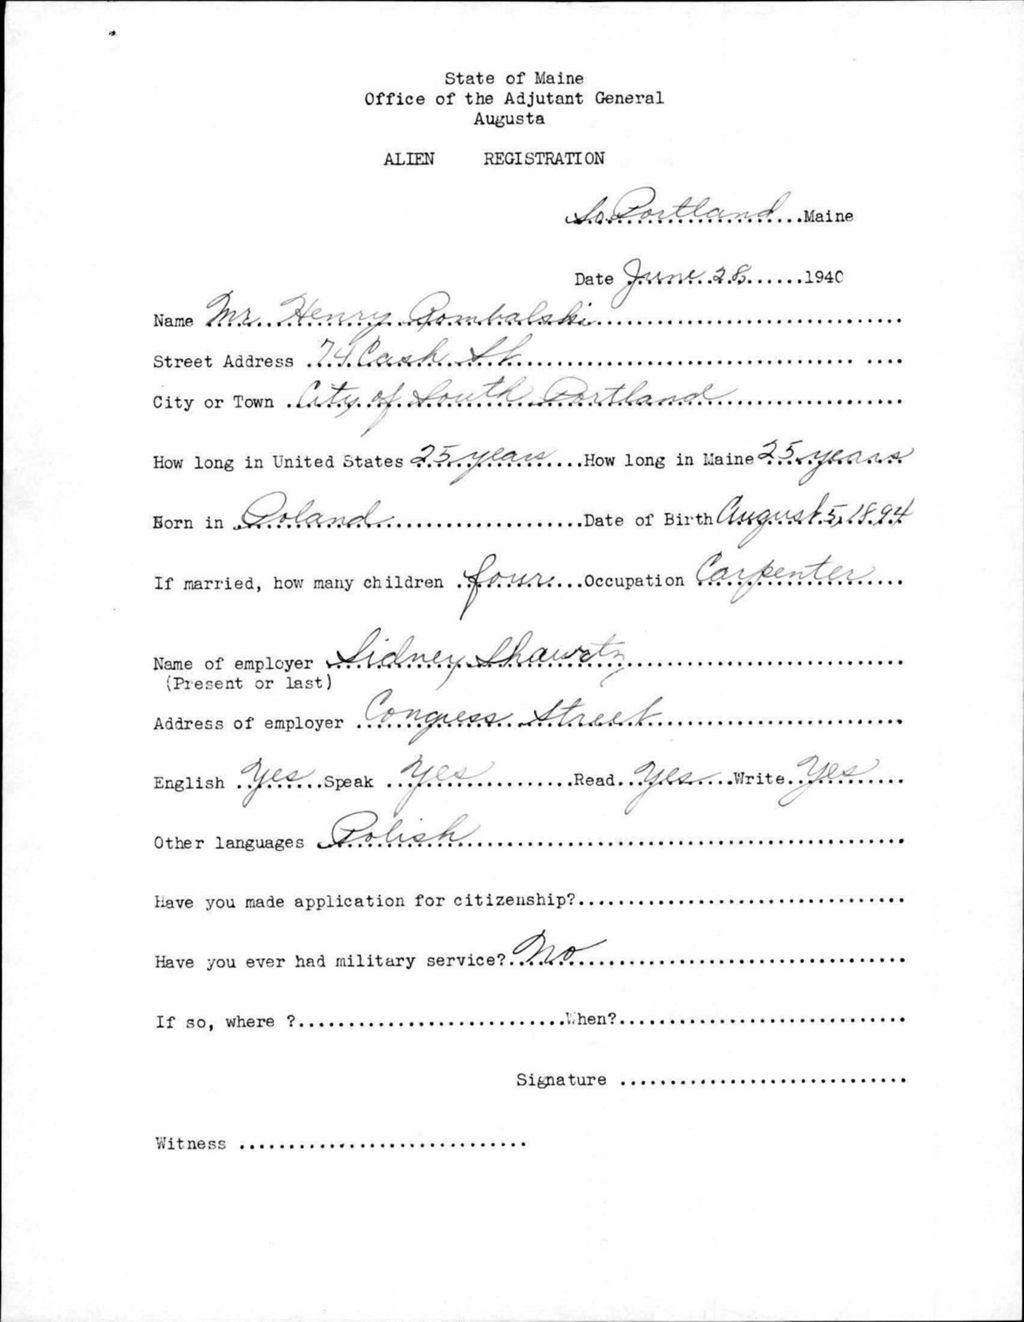 State of Maine
Office of the Adjutant General
Augusta
ALIEN REGISTRATION
So. Portland Maine
Date June 28 1940
Name Mr. Henry Rombalski
Street Address 74 Cash St.
City or Town City of South Portland
How long in United States 25 years How long in Maine 25 years
Born in Poland Date of Birth August 5, 1894
If married, how many children four Occupation Carpenter
Name of employer Sidney Shawrtz
(Present or last)
Address of employer Congress Street
English Yes Speak Yes Read Yes Write Yes
Other languages Polish
Have you made application for citizenship?
Have you ever had military service? No
If so, where ? When?
Signature
Witness